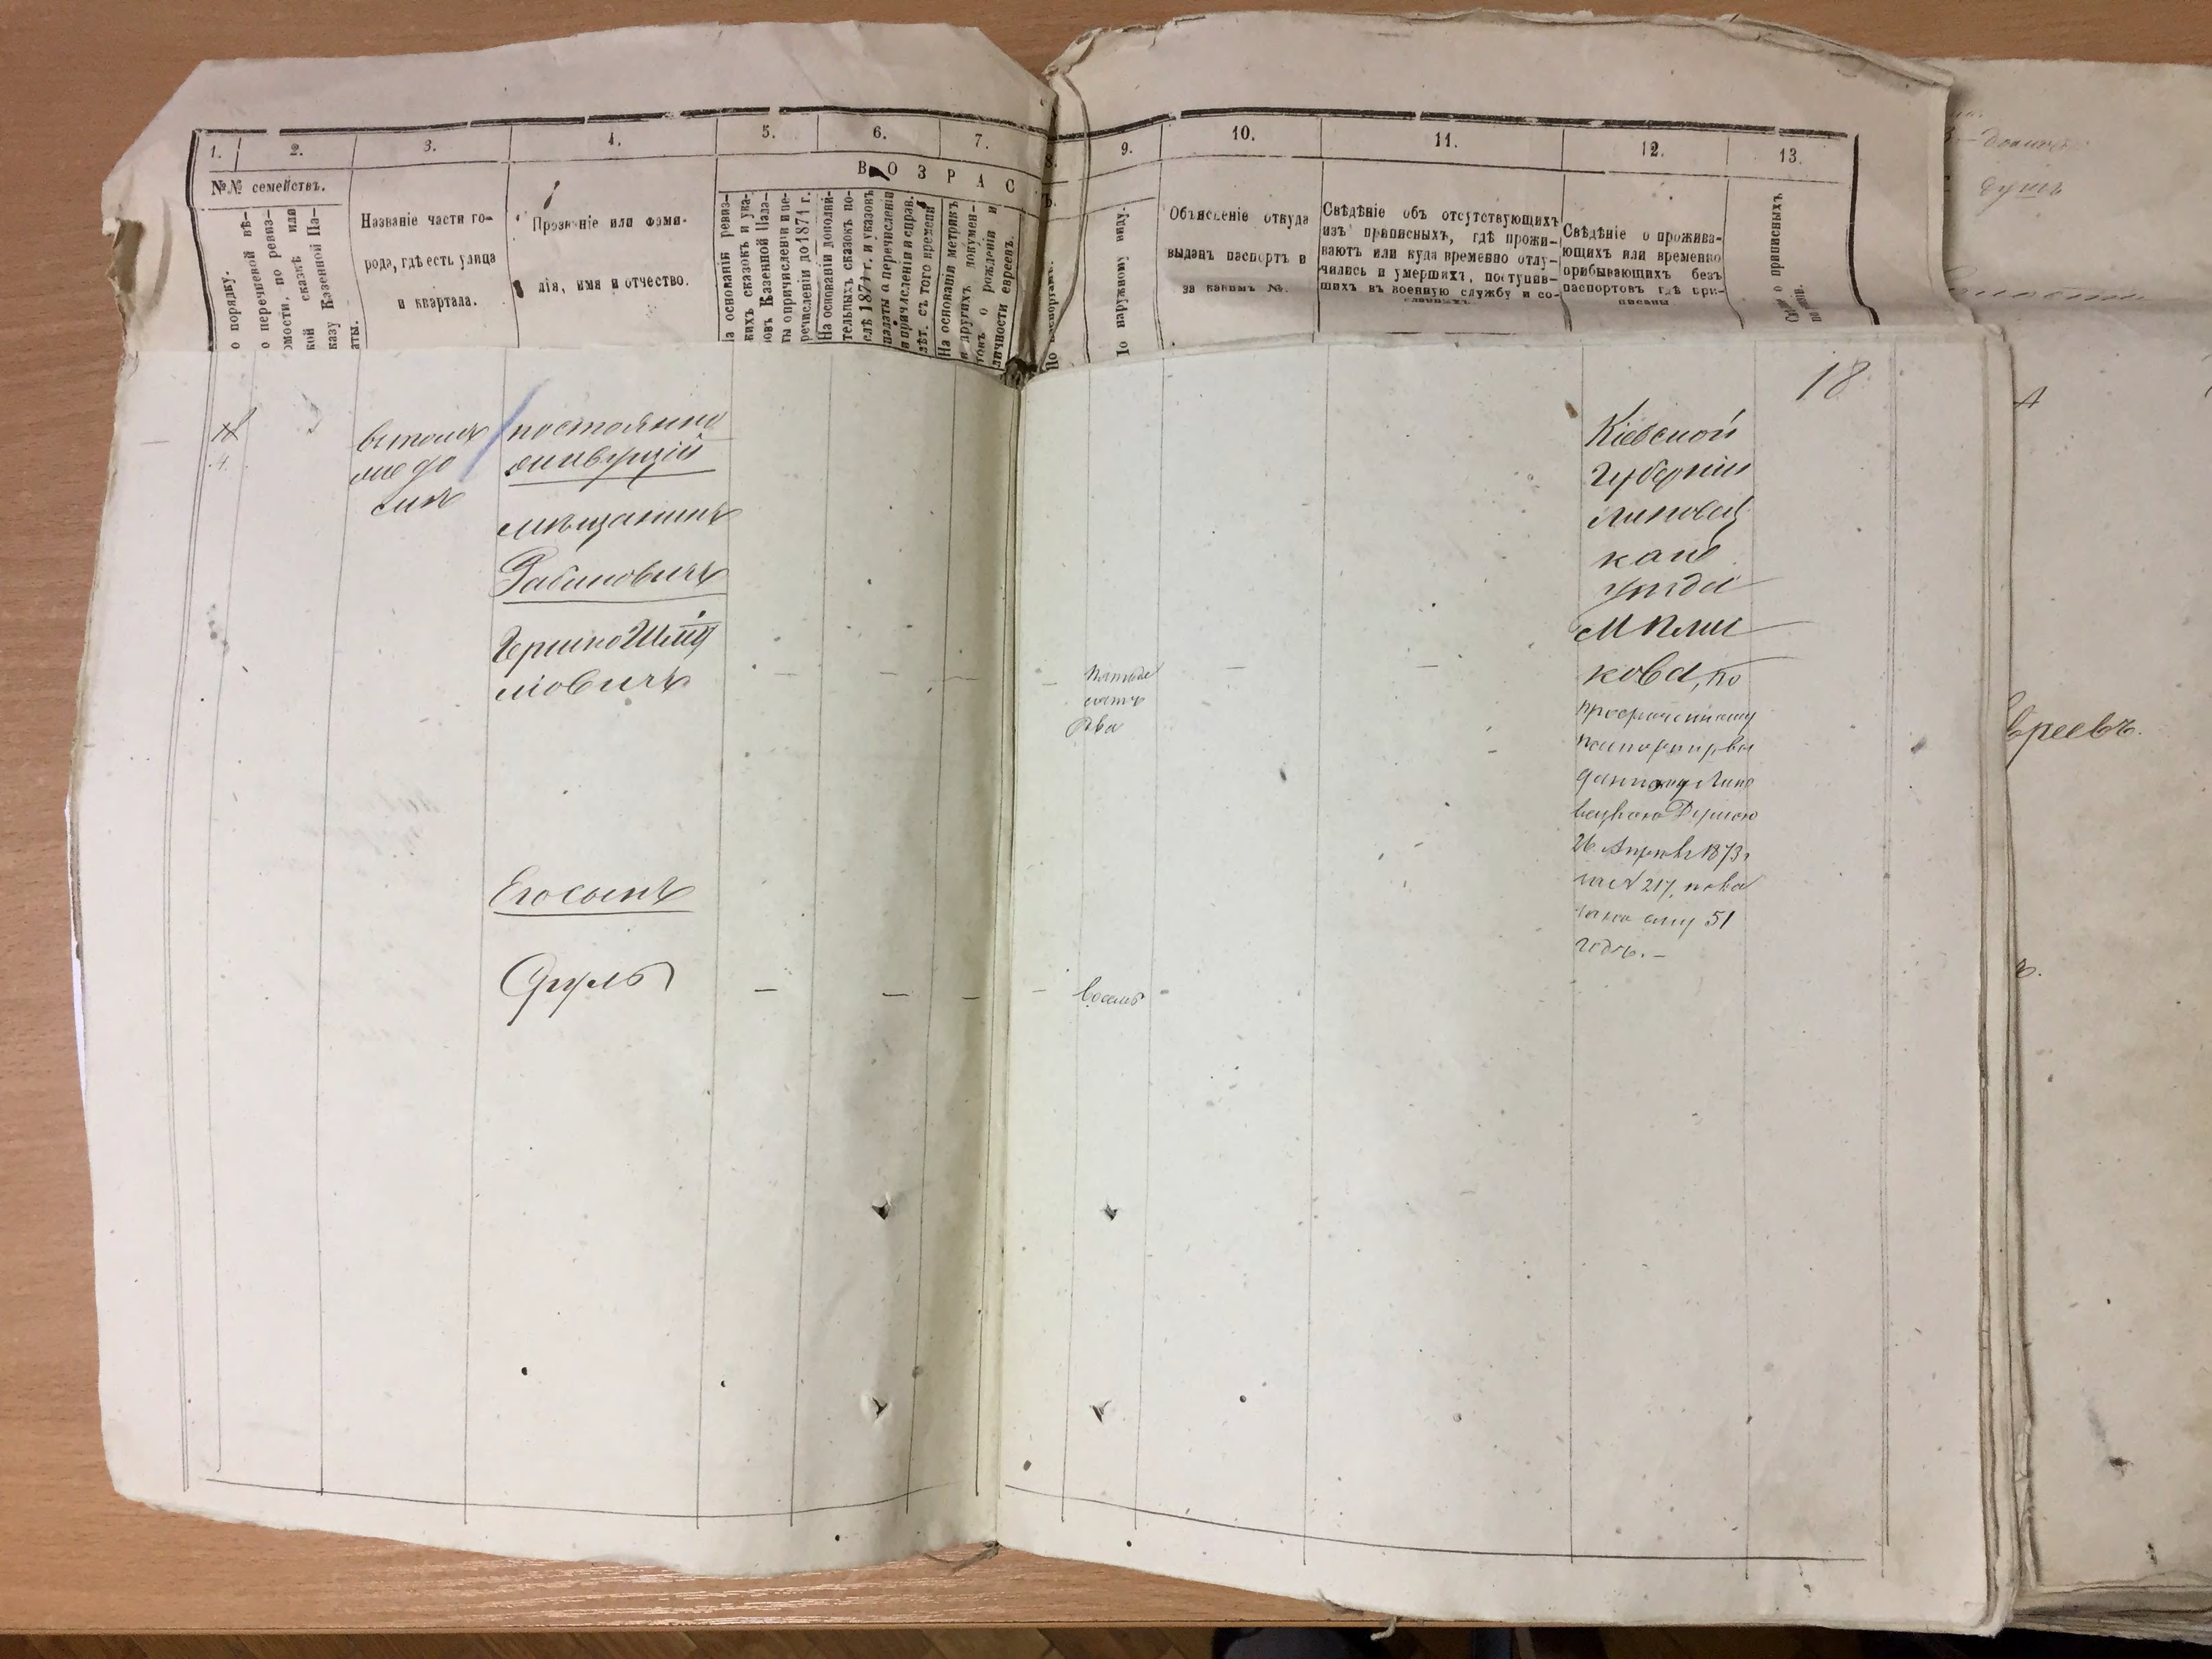 1.
2.
3.
4.
5.
6.
7.
8.
9.
10.
11.
12.
13.
В О З Р А С
Ъ.
№№ семействъ.
о порядку.
о перечневой вѣ-
омости, по ревиз-
кой сказкѣ или
казу Казенной Па-
аты.
Названіе части го-
рода, гдѣ есть улица
и квартала.
Прозваніе или фами-
лія, имя и отчество.
а основаніи ревиз-
кихъ сказокъ и ука-
овъ Казенной Пала-
ты о причисленіи и пе-
речисленіи до 1871 г.
На основаніи дополни-
тельныхъ сказокъ по-
слѣ 1871 г. и указовъ
палаты о перечисленіи
и причисленіи и справ.
лѣт. съ того времени
На основаніи метрикъ
и другихъ докумен-
товъ о рожденіи и
личности евреевъ.
По наружному виду.
Объясненіе откуда
выданъ паспортъ и
за какимъ №.
Свѣдѣніе объ отсутствующихъ
изъ приписныхъ, гдѣ прожи-
ваютъ или куда временно отлу-
чились и умершихъ, поступив-
шихъ въ военную службу и со-
сланныхъ.
Свѣдѣніе о прожива-
ющихъ или временно
прибывающихъ безъ
паспортовъ гдѣ при-
писаны
о приписныхъ
18
4.
въ томъ
же до
мѣ
постоянно
живущій
мѣщанинъ
Рабиновичъ
Гершко Шму
ліовичъ
пятьде
сятъ
два
Кіевской
Губерніи
Липовец
каго
уѣзда
М Илин
ковъ, по
просроченному
паспорту, вы
данному Липо
вецкою Думою
26 Апрѣля 1873 г
за № 217, пока
зано ему 51
годъ. —
Его сынъ
Сруль
—
—
—
—
восемь
душъ
вреевъ.